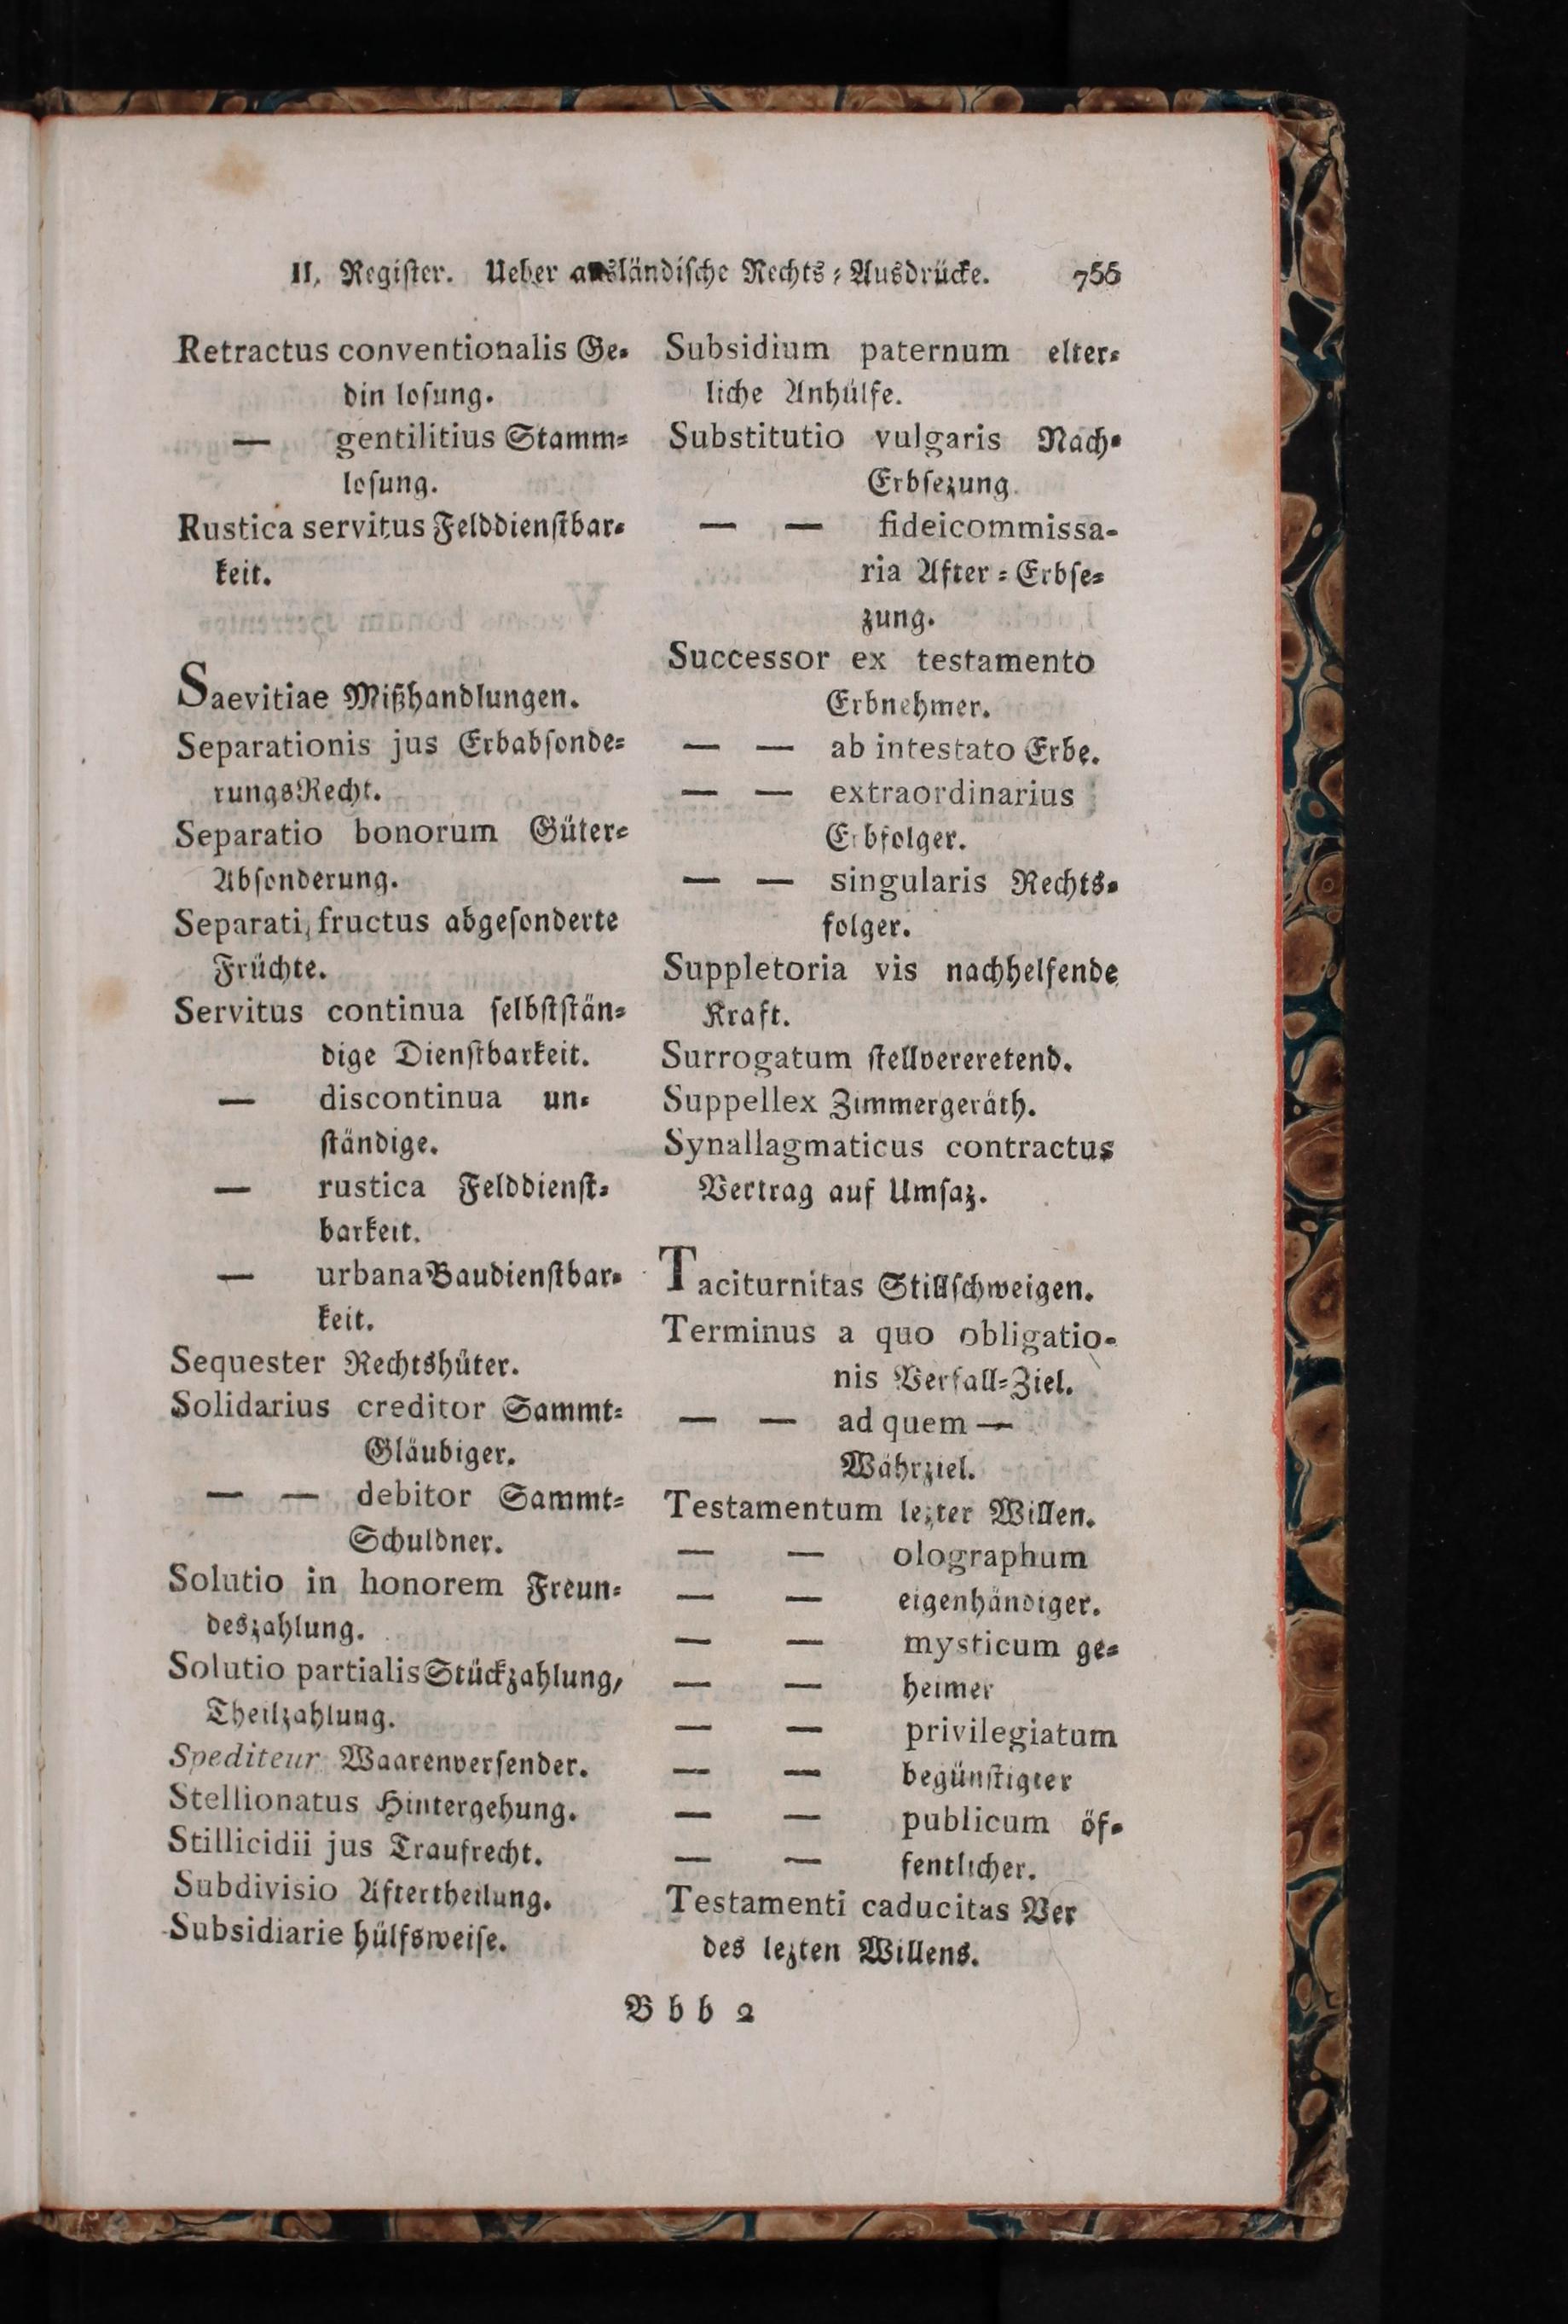 II. Register. Ueber ausländische Rechts-Ausdrücke. 755
Retractus conventionalis Ge-
din losung.
— gentilitius Stamm-
losung.
Rustica servitus Felddienstbar-
keit.
Saevitiae Mißhandlungen.
Separationis jus Erbabsonde-
rungsRecht.
Separatio bonorum Güter-
Absonderung.
Separati, fructus abgesonderte
Früchte.
Servitus continua selbstständige-
dige Dienstbarkeit.
— discontinua un-
ständige.
— rustica Felddienst-
barkeit.
— urbana Baudienstbar-
keit.
Sequester Rechtshüter.
Solidarius creditor Sammt-
Gläubiger.
— — debitor Sammt-
Schuldner.
Solutio in honorem Freun-
deszahlung.
Solutio partialis Stückzahlung,
Theilzahlung.
Spediteur Waarenversender.
Stellionatus Hintergehung.
Stillicidii jus Traufrecht.
Subdivisio Aftertheilung.
Subsidiarie hülfsweise.
Subsidium paternum elter-
liche Anhülfe.
Substitutio vulgaris Nach-
Erbsezung.
— — fideicommissa-
ria After-Erbse-
zung.
Successor ex testamento
Erbnehmer.
— — ab intestato Erbe.
— — extraordinarius
Erbfolger.
— — singularis Rechts-
folger.
Suppletoria vis nachhelfende
Kraft.
Surrogatum stellvereretend.
Suppellex Zimmergeräth.
Synallagmaticus contractus
Vertrag auf Umsaz.
Taciturnitas Stillschweigen.
Terminus a quo obligatio-
nis Verfall-Ziel.
— — ad quem —
Währziel.
Testamentum lezter Willen.
— — olographum
— — eigenhändiger.
— — mysticum ge-
— — heimer
— — privilegiatum
— — begünstigter
— — publicum öf-
— — fentlicher.
Testamenti caducitas Ver
des lezten Willens.
Bbb 2